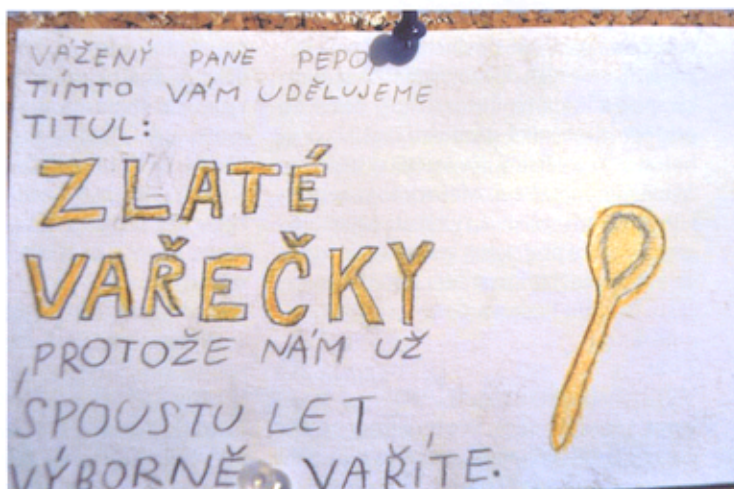 VÁŽENÝ PANE PEPO,
TÍMTO VÁM UDĚLUJEME
TITUL:
ZLATÉ
VAŘEČKY
,PROTOŽE NÁM UŽ
SPOUSTU LET
VÝBORNĚ VAŘÍTE.